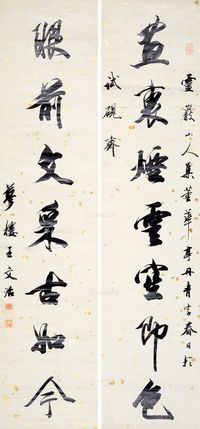 靈巖山人集董華亭丹青春日於
試硯齋
畫裏煙雲空即色
眼前文古如今
夢樓王文治